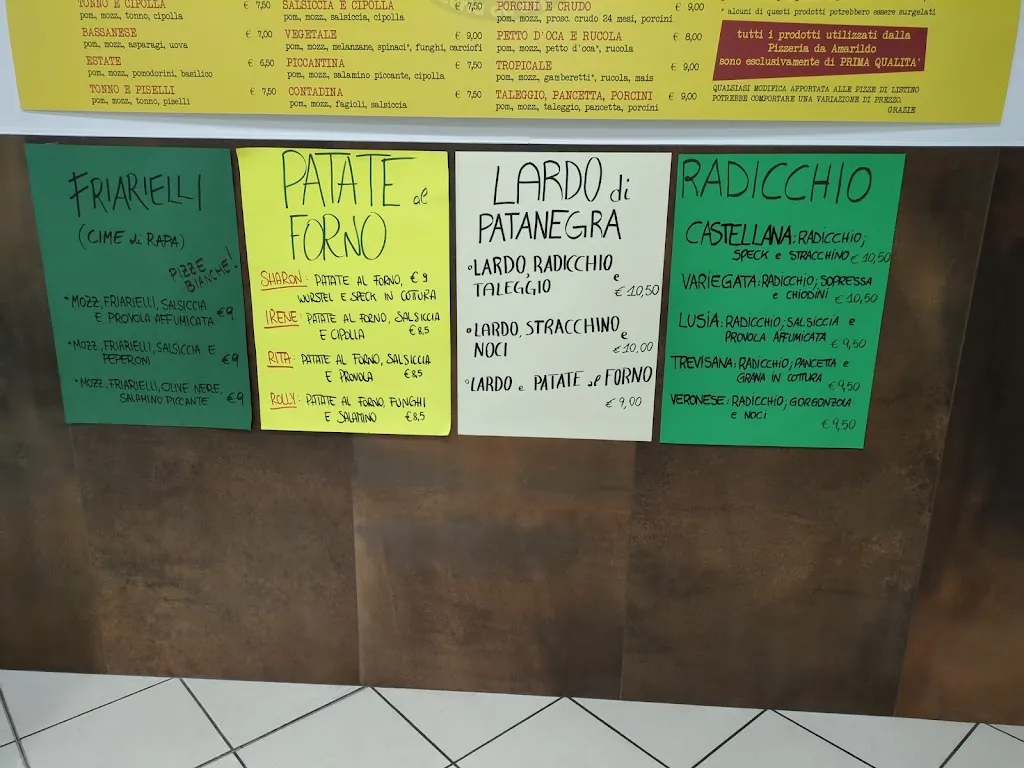 TONNO E CIPOLLA € 7,50
pom, mozz, tonno, cipolla
BASSANESE € 7,00
pom, mozz, asparagi, uova
ESTATE € 6,50
pom, mozz, pomodorini, basilico
TONNO E PISELLI € 7,50
pom, mozz, tonno, piselli
SALSICCIA E CIPOLLA € 7,50
pom, mozz, salsiccia, cipolla
VEGETALE € 9,00
pom, mozz, melanzane, spinaci*, funghi, carciofi
PICCANTINA € 7,50
pom, mozz, salamino piccante, cipolla
CONTADINA € 7,50
pom, mozz, fagioli, salsiccia
PORCINI E CRUDO € 9,00
pom, mozz, prosc. crudo 24 mesi, porcini
PETTO D'OCA E RUCOLA € 8,00
pom, mozz, petto d'oca*, rucola
TROPICALE € 9,00
pom, mozz, gamberetti*, rucola, mais
TALEGGIO, PANCETTA, PORCINI € 9,00
pom, mozz, taleggio, pancetta, porcini
* alcuni di questi prodotti potrebbero essere surgelati
tutti i prodotti utilizzati dalla
Pizzeria da Amarildo
sono esclusivamente di PRIMA QUALITA'
QUALSIASI MODIFICA APPORTATA ALLE PIZZE DI LISTINO
POTREBBE COMPORTARE UNA VARIAZIONE DI PREZZO.
GRAZIE
FRIARIELLI
(CIME di RAPA)
PIZZE
BIANCHE!
°MOZZ, FRIARIELLI, SALSICCIA
E PROVOLA AFFUMICATA €9
°MOZZ, FRIARIELLI, SALSICCIA E
PEPERONI €9
°MOZZ, FRIARIELLI, OLIVE NERE,
SALAMINO PICCANTE €9
PATATE al
FORNO
SHARON: PATATE AL FORNO, €9
WURSTEL E SPECK IN COTTURA
IRENE: PATATE AL FORNO, SALSICCIA
E CIPOLLA €8,5
RITA: PATATE AL FORNO, SALSICCIA
E PROVOLA €8,5
ROLLY: PATATE AL FORNO, FUNGHI
E SALAMINO €8,5
LARDO di
PATANEGRA
°LARDO, RADICCHIO e
TALEGGIO €10,50
°LARDO, STRACCHINO e
NOCI €10,00
°LARDO e PATATE al FORNO
€9,00
RADICCHIO
CASTELLANA: RADICCHIO,
SPECK e STRACCHINO €10,50
VARIEGATA: RADICCHIO, SOPRESSA
e CHIODINI €10,50
LUSIA: RADICCHIO, SALSICCIA e
PROVOLA AFFUMICATA €9,50
TREVISANA: RADICCHIO, PANCETTA e
GRANA IN COTTURA €9,50
VERONESE: RADICCHIO, GORGONZOLA
e NOCI €9,50